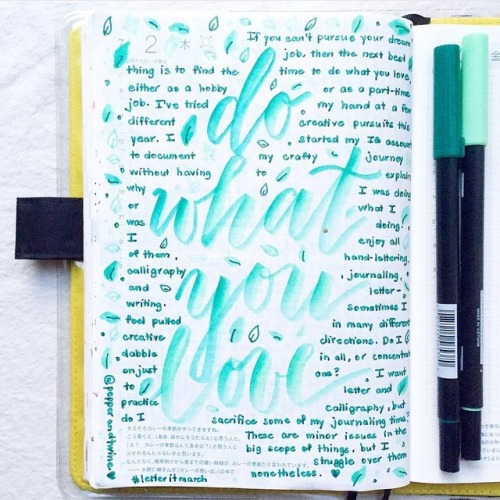 2 木
If you can't pursue your dream
job, then the next best
thing is to find the time to do what you love,
either as a hobby or as a part-time
job. I've tried my hand at a few
different creative pursuits this
year. I started my IG account
to document my crafty journey
without having to explain
why I was doing
or what I
was doing.
I enjoy all
of them, hand-lettering,
calligraphy, journaling,
and letter-
writing. Sometimes I
feel pulled in many different
creative directions. Do I
dabble in all, or concentrate
on just one? I want
to letter and
practice calligraphy, but
do I sacrifice some of my journaling time?
These are minor issues in the
big scope of things, but I
struggle over them
nonetheless.
do
what
you
love
@pepperandtwine
#letteritmarch
MADE IN VIETNAM